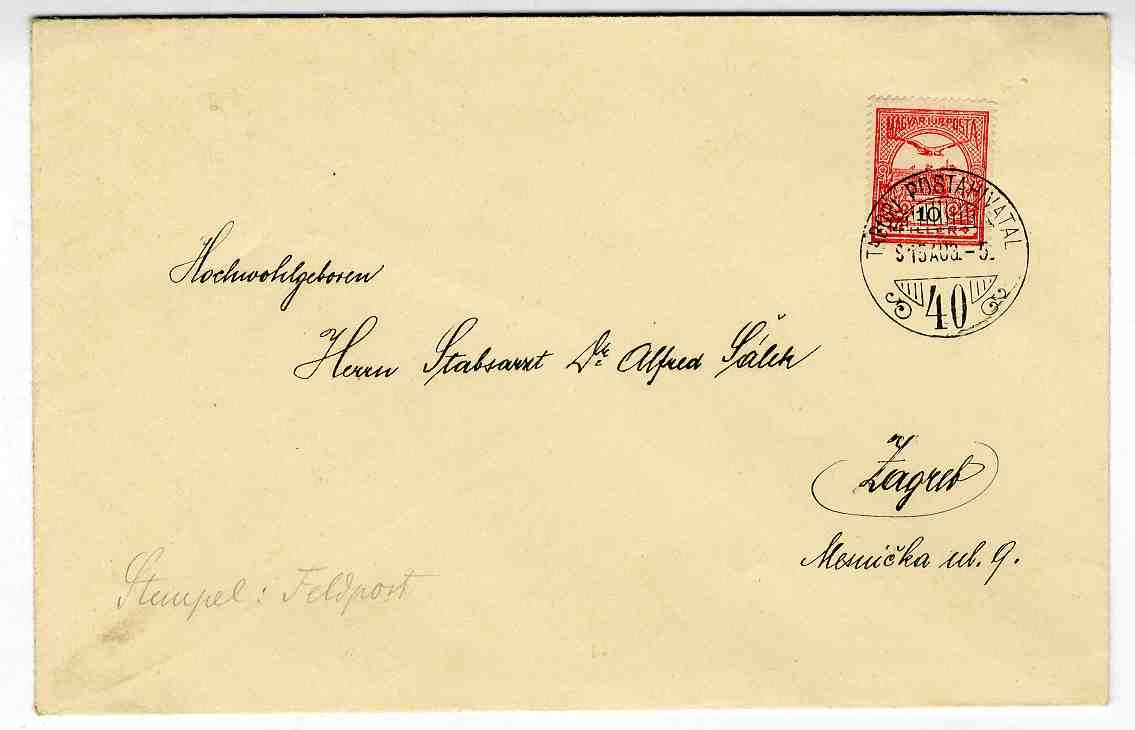 MAGYAR·KIR·POSTA
10
FILLÉR
TÁBORI POSTAHIVATAL
40
Hochwohlgeboren
Herrn Stabsarzt Dr. Alfred
Zagreb
Mesnička ul. 9.
Stempel: Feldpost